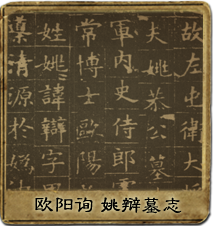 故左屯衛大
夫姚恭公墓
軍內史侍郎
常博士歐陽
姓姚諱辯字
導清源於
欧阳询 姚辩墓志